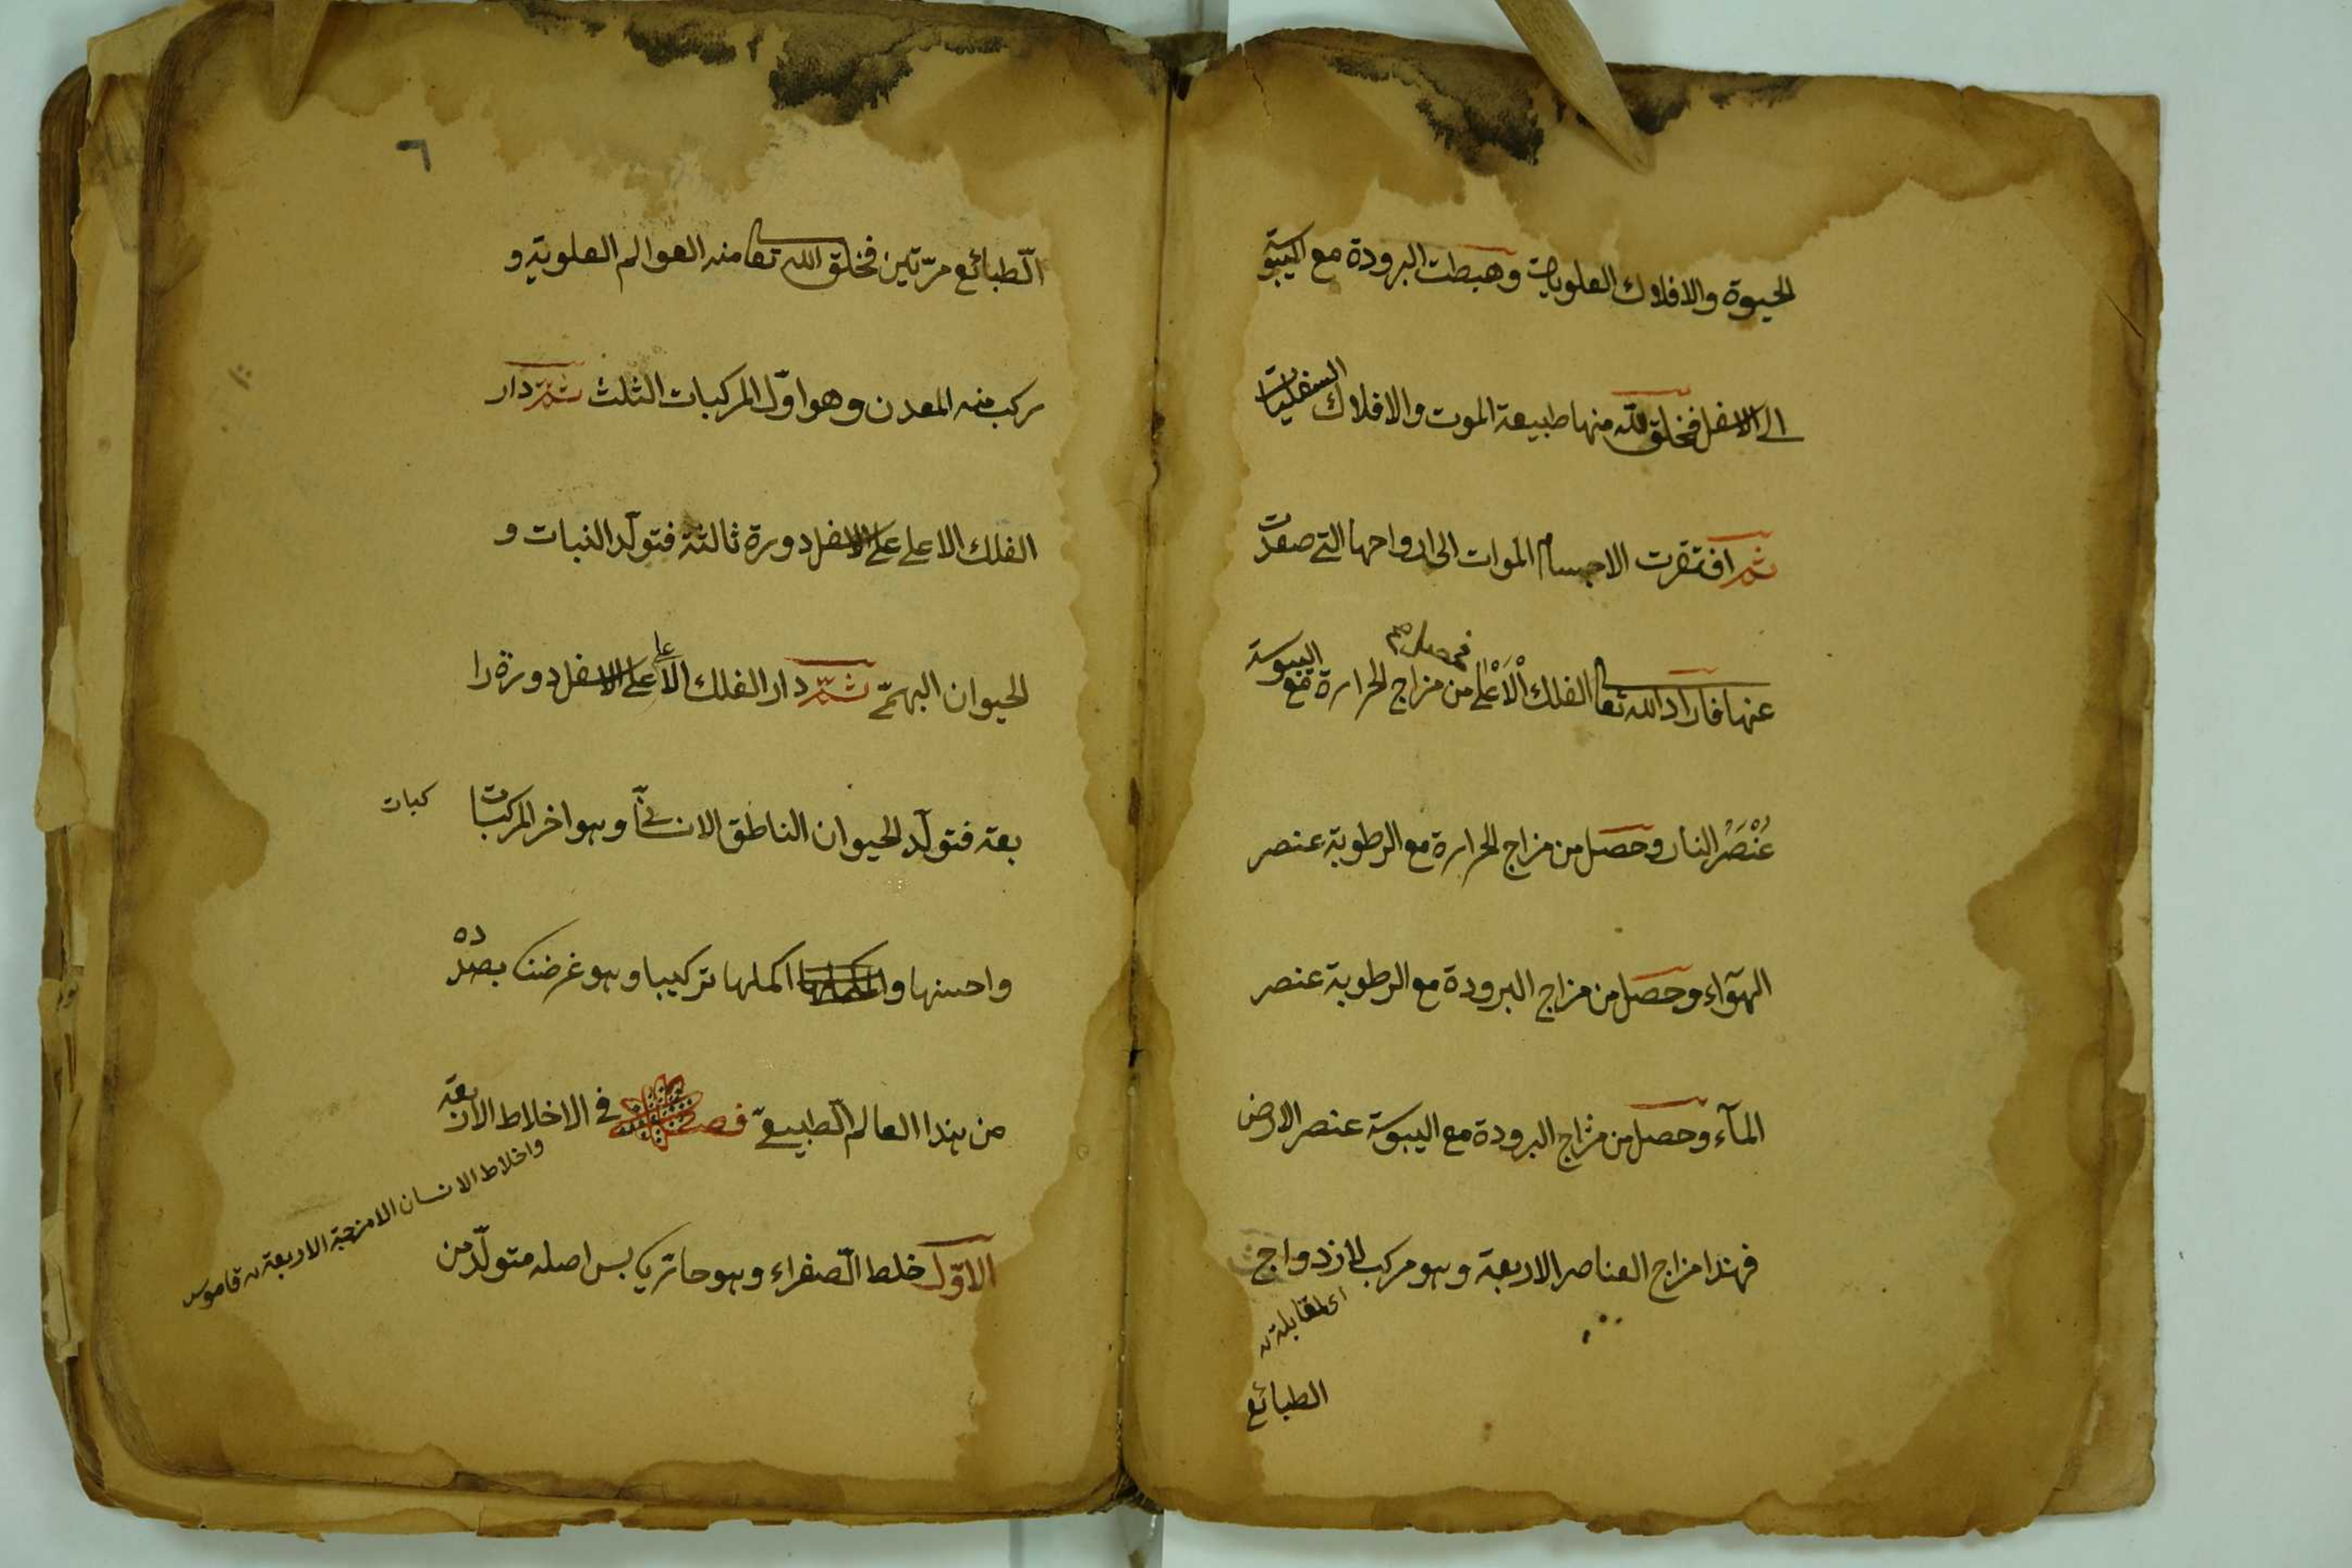 الحيوة والافلاك العلويات وهبطت البرودة مع اليبوسة
الى الاسفل فخلق الله منها طبيعة الموت والافلاك السفليات
ثم افتقرت الاجسام الموات الى ارواحها التى صعدت
عنها فاراد الله تعا الفلك الْاَعْلى من مزاج الحرارة مع اليبوسة
فحصل
عُنْصَرُ النار وحصل من مزاج الحرارة مع الرطوبة عنصر
الهوآء وحصل من مزاج البرودة مع الرطوبة عنصر
المآء وحصل من مزاج البرودة مع اليبوسة عنصر الارض
فهذا مزاج العناصر الاربعة وهو مركب لازدواج
اى لمقابلة
الطبائع
٦
الطّبائع مرّتين فخلق الله تعا منه العوالم العلوية و
ركب منه المعدن وهو اوّل المركبات الثلث ثمّ دار
الفلك الاعلى على الاسفل دورة ثالثة فتولّد النبات و
الحيوان البهمىّ ثمّ دار الفلك الاعلى على الاسفل دورة را
بعة فتولّد الحيوان الناطق الانسانىّ وهو اخر المركبات
كبات
واحسنها و اكملها تركيبا وهو غرضنا بصدده
من هذا العالم الطّبيعىّ فصل فى الاخلاط الاربعة
واخلاط الانسان الامزجة الاربعة قاموس
الاوّل خلط الصّفراء وهو حارّ يابس اصله متولّد من